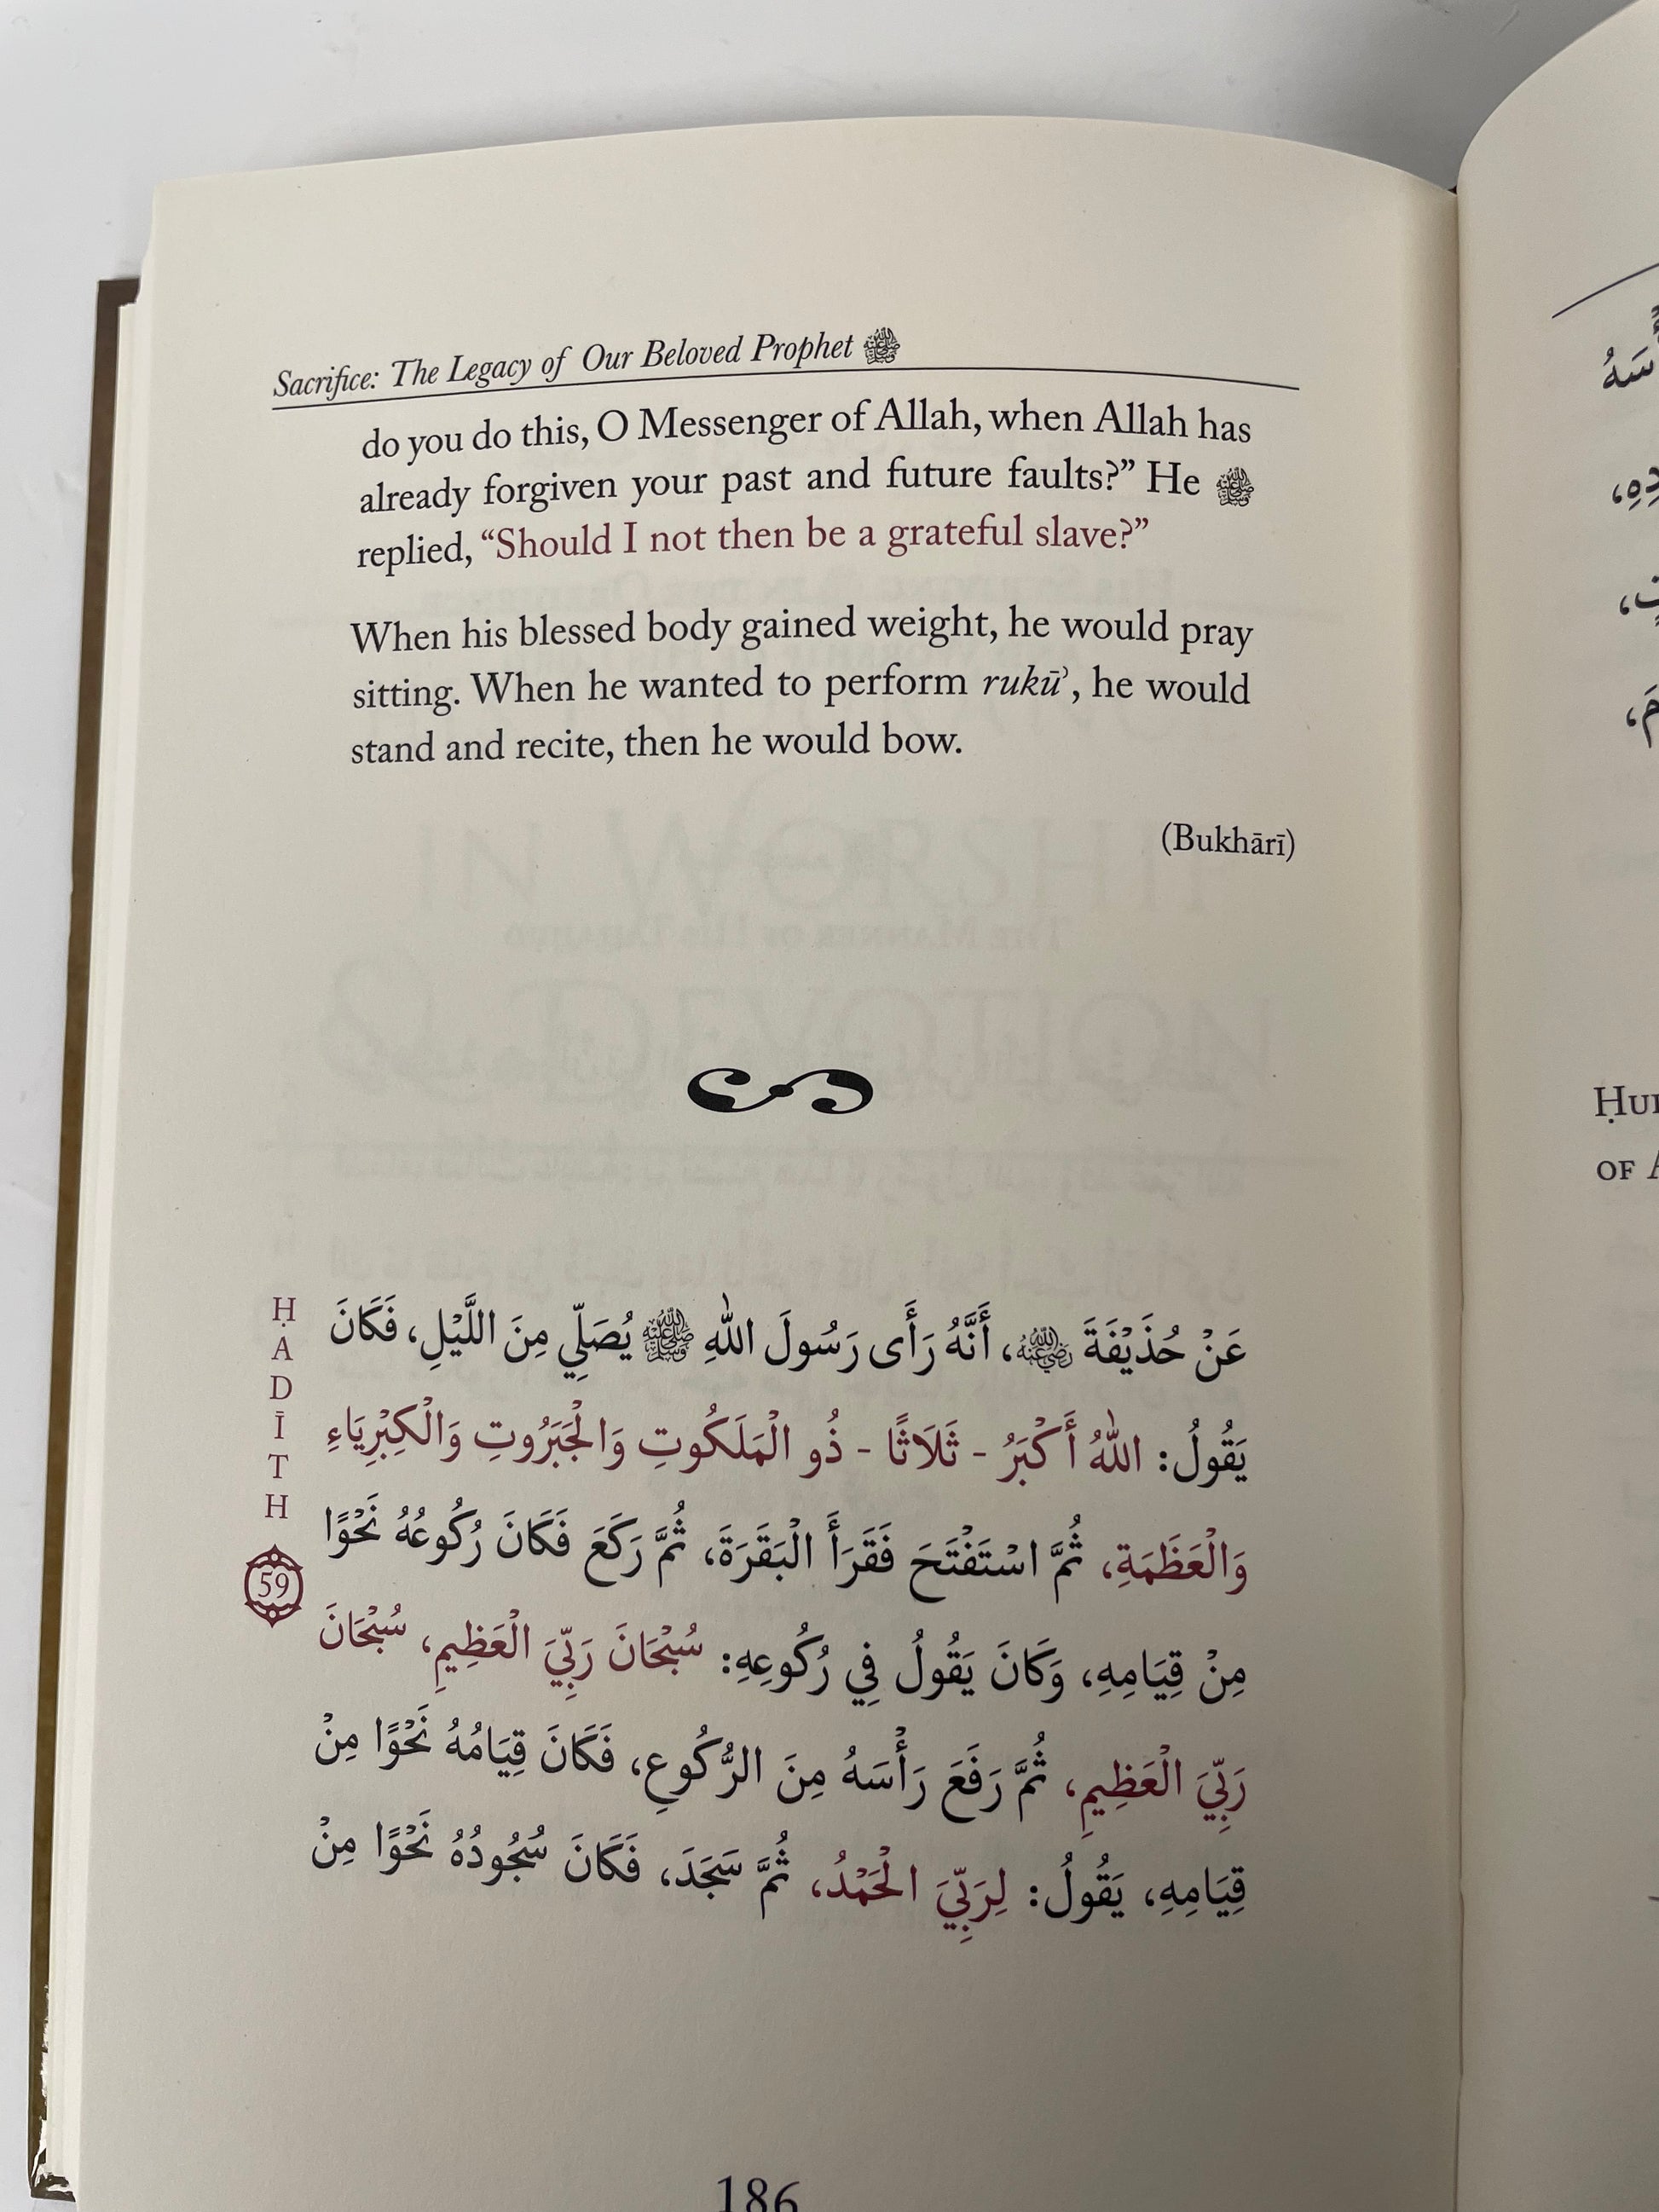 Sacrifice: The Legacy of Our Beloved Prophet ﷺ
do you do this, O Messenger of Allah, when Allah has
already forgiven your past and future faults?” He ﷺ
replied, “Should I not then be a grateful slave?”
When his blessed body gained weight, he would pray
sitting. When he wanted to perform rukūʾ, he would
stand and recite, then he would bow.
(Bukhārī)
ḤADĪTH
59
عَنْ حُذَيْفَةَ رضي الله عنه، أَنَّهُ رَأَى رَسُولَ اللهِ ﷺ يُصَلِّي مِنَ اللَّيْلِ، فَكَانَ
يَقُولُ: اللهُ أَكْبَرُ - ثَلَاثًا - ذُو الْمَلَكُوتِ وَالْجَبَرُوتِ وَالْكِبْرِيَاءِ
وَالْعَظَمَةِ، ثُمَّ اسْتَفْتَحَ فَقَرَأَ الْبَقَرَةَ، ثُمَّ رَكَعَ فَكَانَ رُكُوعُهُ نَحْوًا
مِنْ قِيَامِهِ، وَكَانَ يَقُولُ فِي رُكُوعِهِ: سُبْحَانَ رَبِّيَ الْعَظِيمِ، سُبْحَانَ
رَبِّيَ الْعَظِيمِ، ثُمَّ رَفَعَ رَأْسَهُ مِنَ الرُّكُوعِ، فَكَانَ قِيَامُهُ نَحْوًا مِنْ
قِيَامِهِ، يَقُولُ: لِرَبِّيَ الْحَمْدُ، ثُمَّ سَجَدَ، فَكَانَ سُجُودُهُ نَحْوًا مِنْ
186